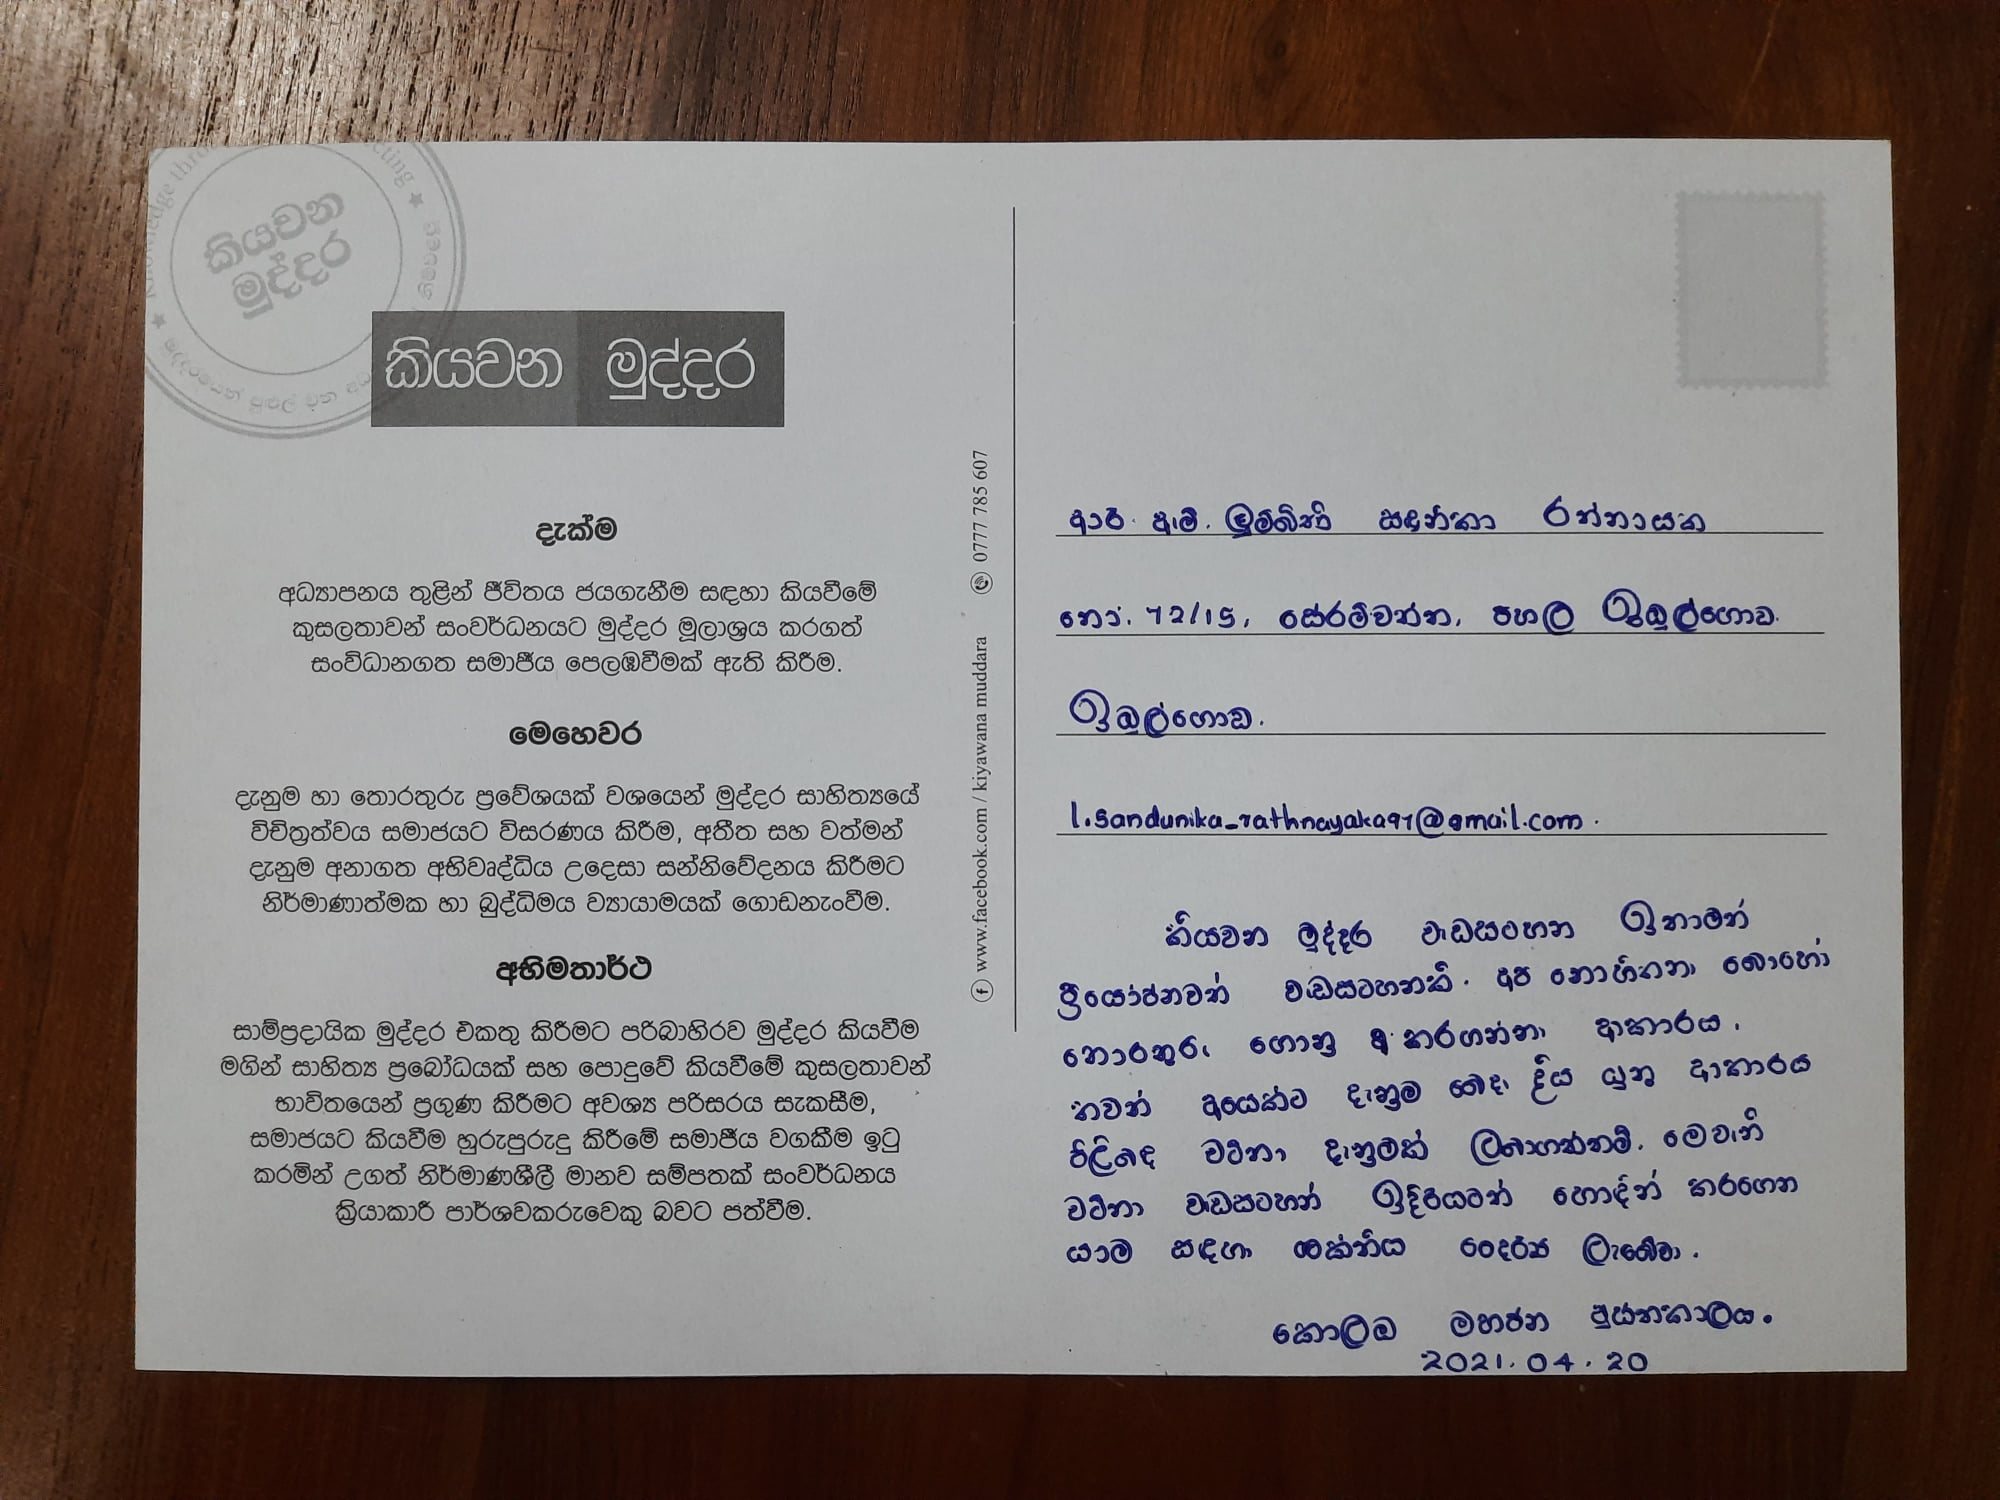 Knowledge thro
cting
කියවන
මුද්දර
කියවන මුද්දර
දැක්ම
අධ්‍යාපනය තුළින් ජීවිතය ජයගැනීම සඳහා කියවීමේ
කුසලතාවන් සංවර්ධනයට මුද්දර මූලාශ්‍රය කරගත්
සංවිධානගත සමාජීය පෙලඹවීමක් ඇති කිරීම.
මෙහෙවර
දැනුම හා තොරතුරු ප්‍රවේශයක් වශයෙන් මුද්දර සාහිත්‍යයේ
විචිත්‍රත්වය සමාජයට විසරණය කිරීම, අතීත සහ වත්මන්
දැනුම අනාගත අභිවෘද්ධිය උදෙසා සන්නිවේදනය කිරීමට
නිර්මාණාත්මක හා බුද්ධිමය ව්‍යායාමයක් ගොඩනැංවීම.
අභිමතාර්ථ
සාම්ප්‍රදායික මුද්දර එකතු කිරීමට පරිබාහිරව මුද්දර කියවීම
මගින් සාහිත්‍ය ප්‍රබෝධයක් සහ පොදුවේ කියවීමේ කුසලතාවන්
භාවිතයෙන් ප්‍රගුණ කිරීමට අවශ්‍ය පරිසරය සැකසීම,
සමාජයට කියවීම හුරුපුරුදු කිරීමේ සමාජීය වගකීම ඉටු
කරමින් උගත් නිර්මාණශීලී මානව සම්පතක් සංවර්ධනය
ක්‍රියාකාරී පාර්ශවකරුවෙකු බවට පත්වීම.
www.facebook.com / kiyawana muddara 0777 785 607
ආර්. ඇම්. ලුම්බිණි සඳනිකා රත්නායක
නො. 72/15, සේරම්වත්ත, පහල ඉඹුල්ගොඩ.
ඉඹුල්ගොඩ.
l.sandunika_rathnayaka97@gmail.com.
කියවන මුද්දර වැඩසටහන ඉතාමත්
ප්‍රයෝජනවත් වැඩසටහනකි. අප නොහිතන බොහෝ
තොරතුරු ගොනු කරගන්නා ආකාරය.
තවත් අයෙක්ට දැනුම බෙදා දිය යුතු ආකාරය
පිළිබඳ වටිනා දැනුමක් ලබාගත්තමි. මෙවැනි
වටිනා වැඩසටහන් ඉදිරියටත් හොඳින් කරගෙන
යාම සඳහා ශක්තිය ධෛර්ය ලැබේවා.
කොළඹ මහජන පුස්තකාලය.
2021.04.20